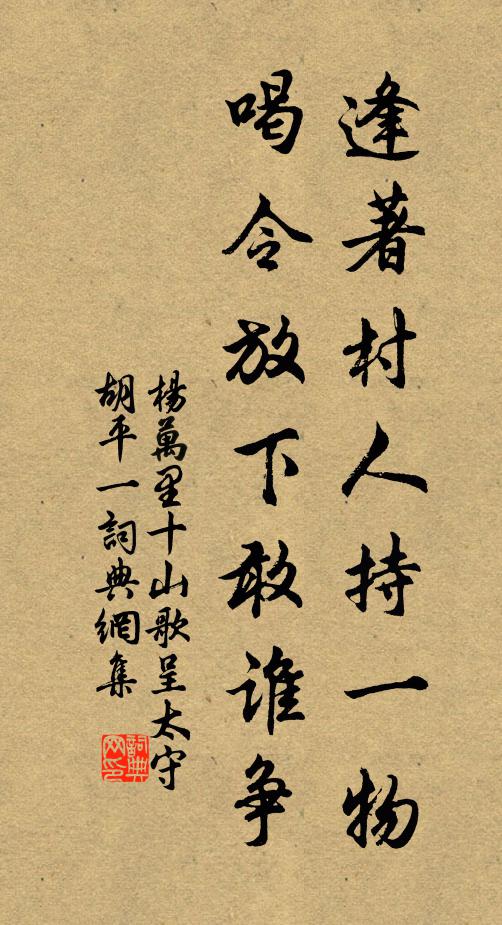 逢著村人持一物
喝令放下敢谁争
楊萬里十山歌呈太守
胡平一詞典網集
詞典
网印